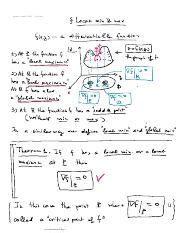 § Local min & max
f(x,y) - a differentiable function
1) At P the function f has a "local maximum"
2) At Q the function f has a "local maximum" & also a "global maximum"
∇f|P = 0
∇f|Q = 0
3) At R the function f has a
(neither min or max)
In a similar way we define "local min" and "global min"
Theorem 1. If f has a local min or a local
maximum at P then
∇f|P = 0
In this case the point P where ∇f|P = 0 is
called a "critical point of f"